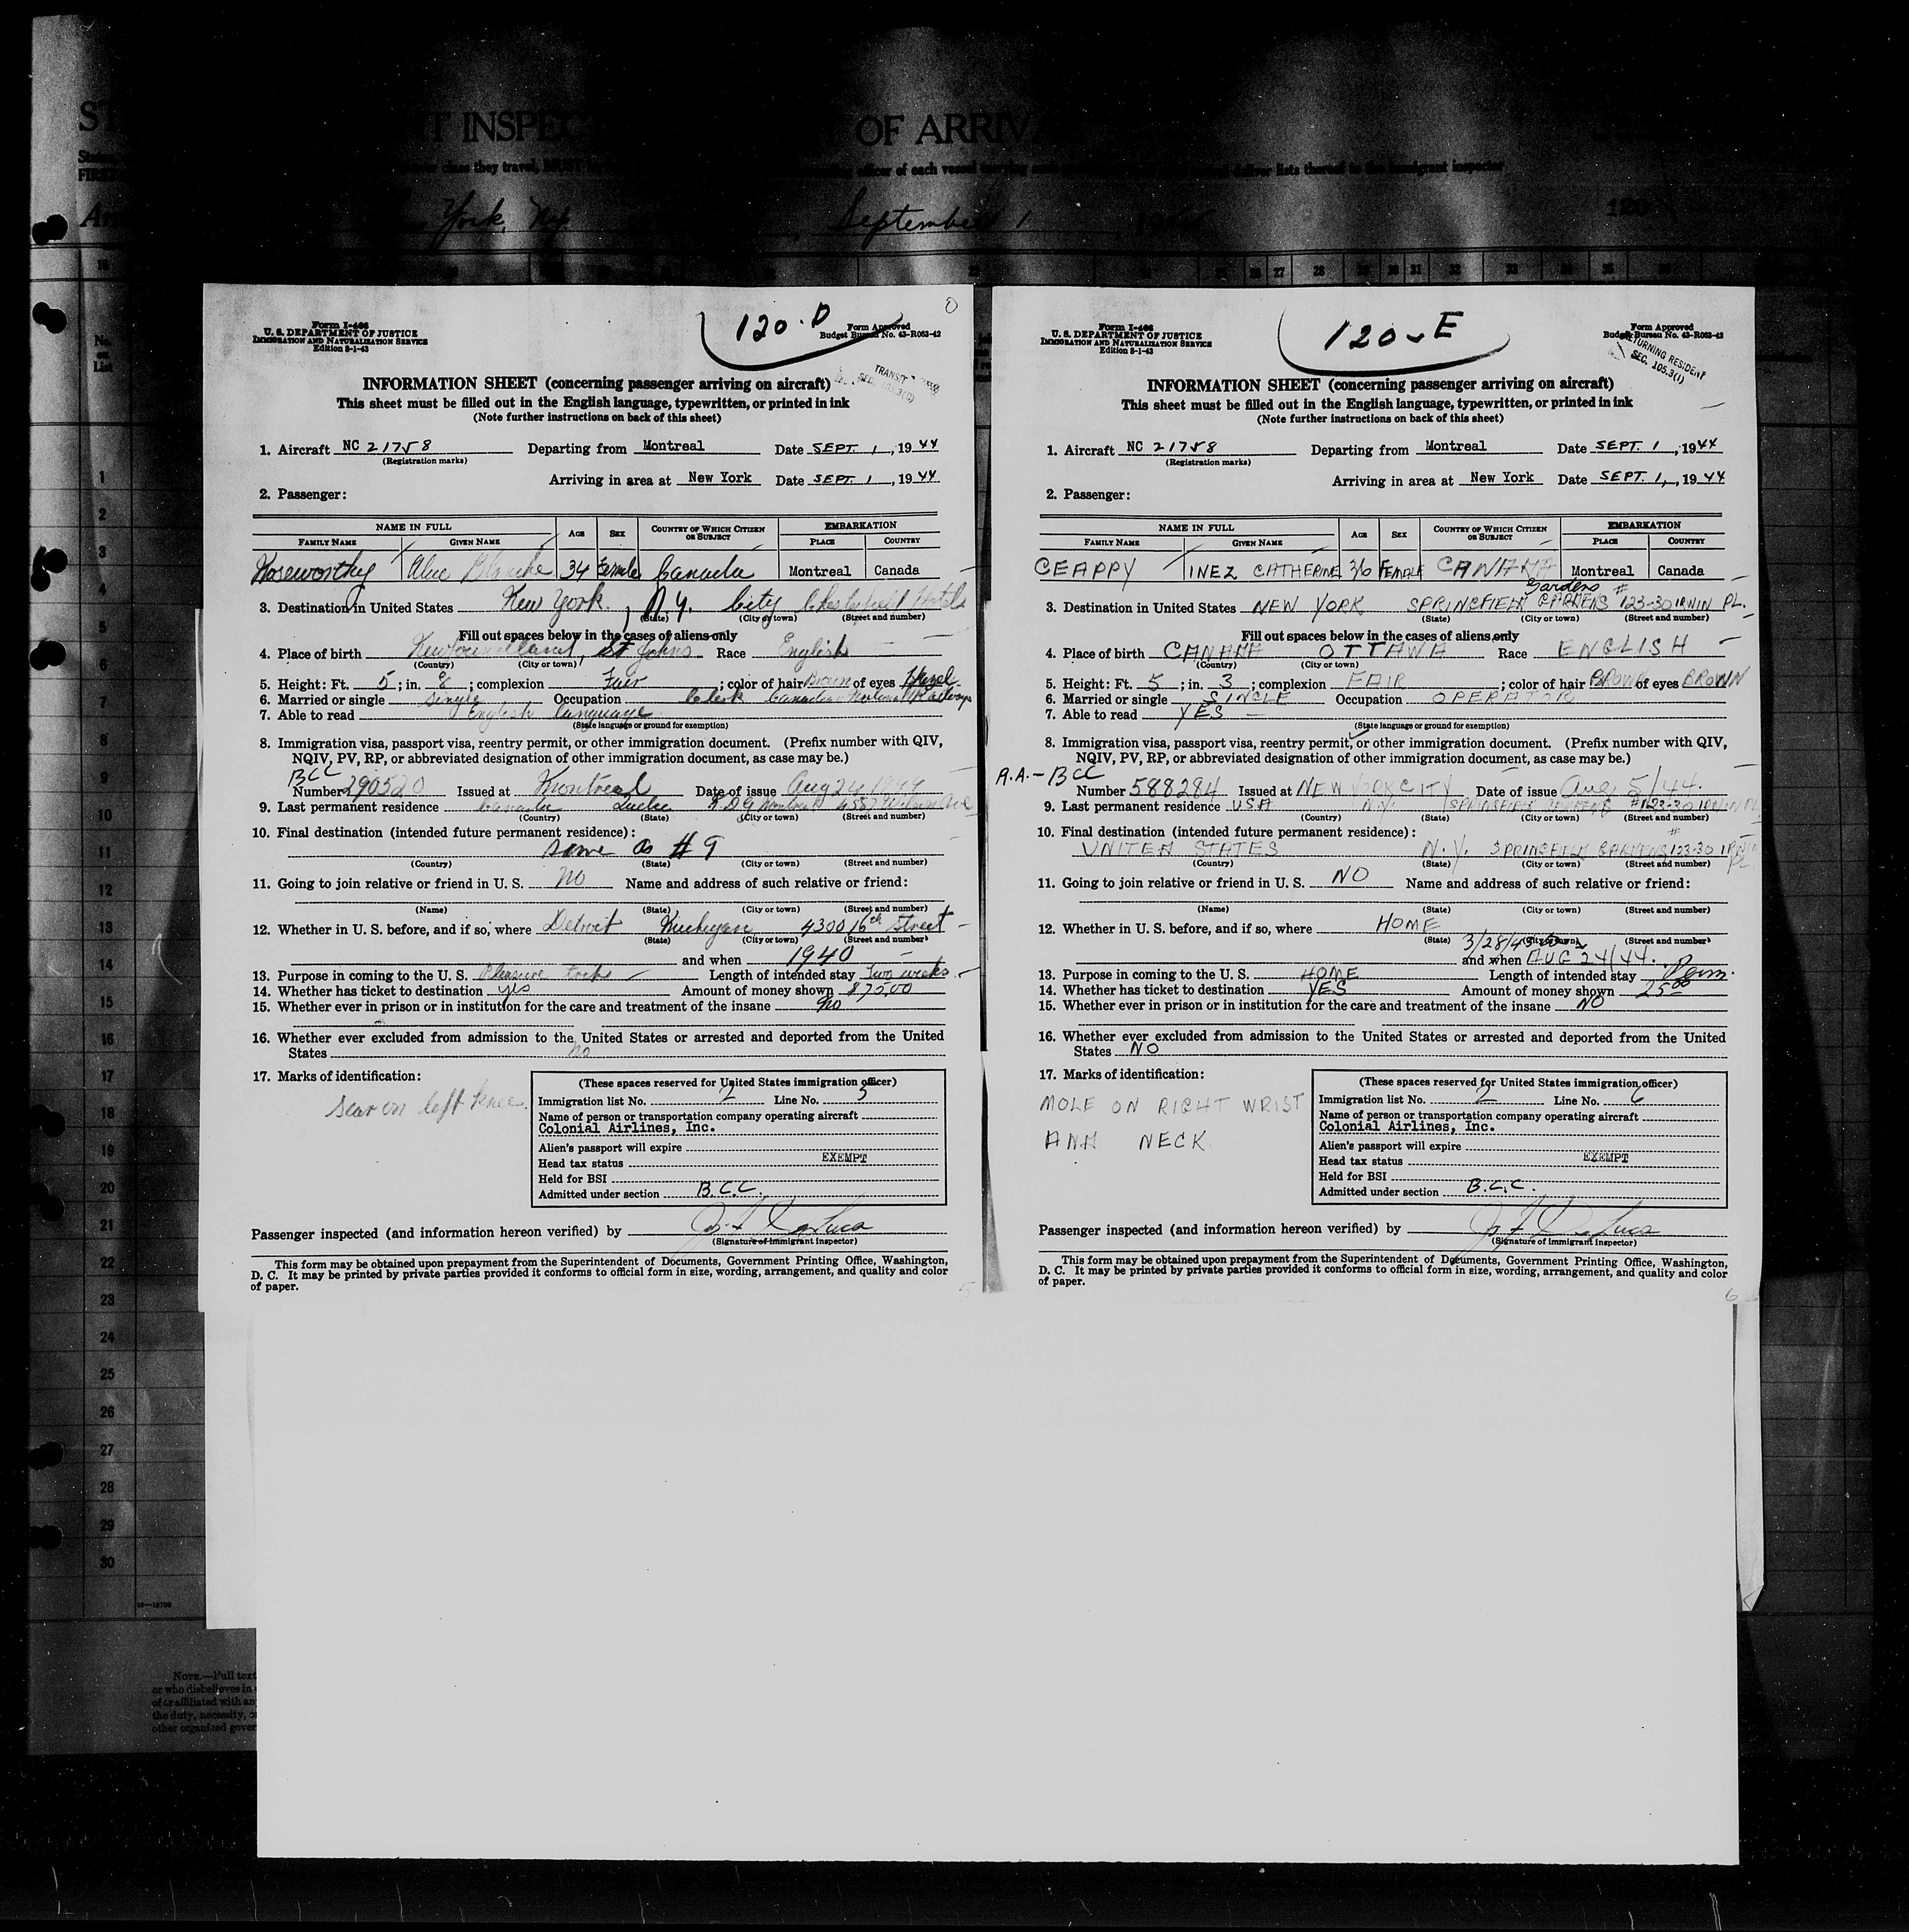 T INSPEC OF ARRIV
York, Ny. September 1
120-D
Form I-466
U. S. DEPARTMENT OF JUSTICE
IMMIGRATION AND NATURALIZATION SERVICE
Edition 8-1-43
Form Approved
Budget Bureau No. 43-R063-42
TRANSIT
INFORMATION SHEET (concerning passenger arriving on aircraft)
This sheet must be filled out in the English language, typewritten, or printed in ink
(Note further instructions on back of this sheet)
1. Aircraft NC 21758 Departing from Montreal Date SEPT. 1, 1944
(Registration marks)
Arriving in area at New York Date SEPT. 1, 1944
2. Passenger:
NAME IN FULL AGE SEX COUNTRY OF WHICH CITIZEN OR SUBJECT EMBARKATION
FAMILY NAME GIVEN NAME PLACE COUNTRY
Noseworthy Alice Blanche 34 Female Canada Montreal Canada
3. Destination in United States New York, N.Y. City Chesterfield Hotel
(State) (City or town) (Street and number)
Fill out spaces below in the cases of aliens only
4. Place of birth Newfoundland, St Johns Race English
(Country) (City or town)
5. Height: Ft. 5; in. 8; complexion Fair; color of hair Brown of eyes Hazel
6. Married or single single Occupation Clerk Canadian National Railways
7. Able to read English language
(State language or ground for exemption)
8. Immigration visa, passport visa, reentry permit, or other immigration document. (Prefix number with QIV,
NQIV, PV, RP, or abbreviated designation of other immigration document, as case may be.)
BCC
Number 290520 Issued at Montreal Date of issue Aug 24 1944
9. Last permanent residence Canada Quebec N.D.G Montreal 4557 Wilson Ave
(Country) (State) (City or town) (Street and number)
10. Final destination (intended future permanent residence):
same as #9
(Country) (State) (City or town) (Street and number)
11. Going to join relative or friend in U. S. no Name and address of such relative or friend:
(Name) (State) (City or town) (Street and number)
12. Whether in U. S. before, and if so, where Detroit Michigan 4300 16th Street
(State) (City or town) (Street and number)
and when 1940
13. Purpose in coming to the U. S. Pleasure Length of intended stay Two weeks
14. Whether has ticket to destination yes Amount of money shown $75.00
15. Whether ever in prison or in institution for the care and treatment of the insane no
16. Whether ever excluded from admission to the United States or arrested and deported from the United
States no
17. Marks of identification:
scar on left knee
(These spaces reserved for United States immigration officer)
Immigration list No. 2 Line No. 5
Name of person or transportation company operating aircraft
Colonial Airlines, Inc.
Alien's passport will expire
Head tax status EXEMPT
Held for BSI
Admitted under section B.C.C.
Passenger inspected (and information hereon verified) by
(Signature of immigrant inspector)
This form may be obtained upon prepayment from the Superintendent of Documents, Government Printing Office, Washington,
D. C. It may be printed by private parties provided it conforms to official form in size, wording, arrangement, and quality and color
of paper.
5
120-E
Form I-466
U. S. DEPARTMENT OF JUSTICE
IMMIGRATION AND NATURALIZATION SERVICE
Edition 8-1-43
Form Approved
Budget Bureau No. 43-R063-42
RETURNING RESIDENT
SEC. 105.3(1)
INFORMATION SHEET (concerning passenger arriving on aircraft)
This sheet must be filled out in the English language, typewritten, or printed in ink
(Note further instructions on back of this sheet)
1. Aircraft NC 21758 Departing from Montreal Date SEPT. 1, 1944
(Registration marks)
Arriving in area at New York Date SEPT. 1, 1944
2. Passenger:
NAME IN FULL AGE SEX COUNTRY OF WHICH CITIZEN OR SUBJECT EMBARKATION
FAMILY NAME GIVEN NAME PLACE COUNTRY
CEAPPY INEZ CATHERINE 36 FEMALE CANADA Montreal Canada
Gardens
3. Destination in United States NEW YORK SPRINGFIELD GARDENS #123-30 IRWIN PL.
(State) (City or town) (Street and number)
Fill out spaces below in the cases of aliens only
4. Place of birth CANADA OTTAWA Race ENGLISH
(Country) (City or town)
5. Height: Ft. 5; in. 3; complexion FAIR; color of hair BROWN of eyes BROWN
6. Married or single SINGLE Occupation OPERATOR
7. Able to read YES
(State language or ground for exemption)
8. Immigration visa, passport visa, reentry permit, or other immigration document. (Prefix number with QIV,
NQIV, PV, RP, or abbreviated designation of other immigration document, as case may be.)
A.A.- BCC
Number 588284 Issued at NEW YORK CITY Date of issue Aug 5/44.
9. Last permanent residence U.S.A N.Y. SPRINGFIELD GARDENS #123-30 IRWIN PL
(Country) (State) (City or town) (Street and number)
10. Final destination (intended future permanent residence):
UNITED STATES N.Y. SPRINGFIELD GARDENS #123-30 IRWIN PL
(Country) (State) (City or town) (Street and number)
11. Going to join relative or friend in U. S. NO Name and address of such relative or friend:
(Name) (State) (City or town) (Street and number)
12. Whether in U. S. before, and if so, where HOME
(State) (City or town) (Street and number)
3/28/43
and when AUG 24/44.
13. Purpose in coming to the U. S. HOME Length of intended stay Perm.
14. Whether has ticket to destination YES Amount of money shown 25.00
15. Whether ever in prison or in institution for the care and treatment of the insane NO
16. Whether ever excluded from admission to the United States or arrested and deported from the United
States NO
17. Marks of identification:
MOLE ON RIGHT WRIST
AND NECK
(These spaces reserved for United States immigration officer)
Immigration list No. 2 Line No. 6
Name of person or transportation company operating aircraft
Colonial Airlines, Inc.
Alien's passport will expire
Head tax status EXEMPT
Held for BSI
Admitted under section B.C.C.
Passenger inspected (and information hereon verified) by
(Signature of immigrant inspector)
This form may be obtained upon prepayment from the Superintendent of Documents, Government Printing Office, Washington,
D. C. It may be printed by private parties provided it conforms to official form in size, wording, arrangement, and quality and color
of paper.
6
NOTE.—Full text
or who disbelieves in
of or affiliated with
the duty, necessity,
other organized